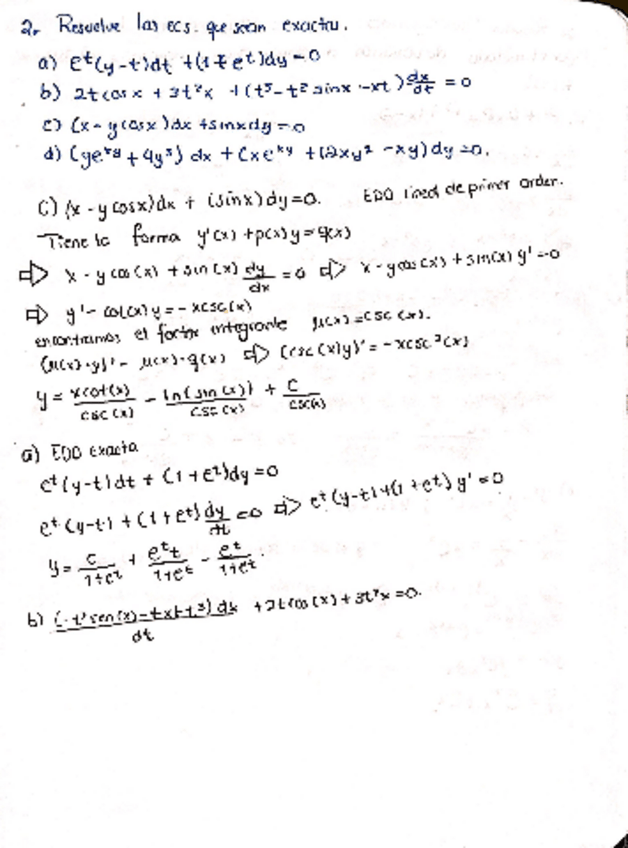 2. Resuelve las ecs. que sean exactas.
a) e^t(y-t)dt + (1+e^t)dy = 0
b) 2t cos x + 3t²x + (t³ - t² sinx - xt) dx/dt = 0
c) (x - y cosx)dx + sinx dy = 0
d) (ye^xy + 4y³) dx + (xe^xy + 12xy² - xy) dy = 0.
C) (x - y cosx)dx + (sinx)dy = 0. EDO lineal de primer orden.
Tiene la forma y'(x) + p(x)y = q(x)
⇒ x - y cos(x) + sin(x) dy/dx = 0 ⇒ x - y cos(x) + sin(x) y' = 0
⇒ y' - cot(x) y = - x csc(x)
encontramos el factor integrante μ(x) = csc(x).
(μ(x)·y)' = μ(x)·q(x) ⇒ (csc(x)y)' = -xcsc²(x)
y = xcot(x)/csc(x) - ln(sin(x))/csc(x) + C/csc(x)
a) EDO Exacta
e^t(y-t)dt + (1+e^t)dy = 0
e^t(y-t) + (1+e^t) dy/dt = 0 ⇒ e^t(y-t)+(1+e^t) y' = 0
y = c/1+e^t + e^t t/1+e^t - e^t/1+e^t.
b) (-t² sen(x) - tx + t³) dx/dt + 2t cos(x) + 3t²x = 0.